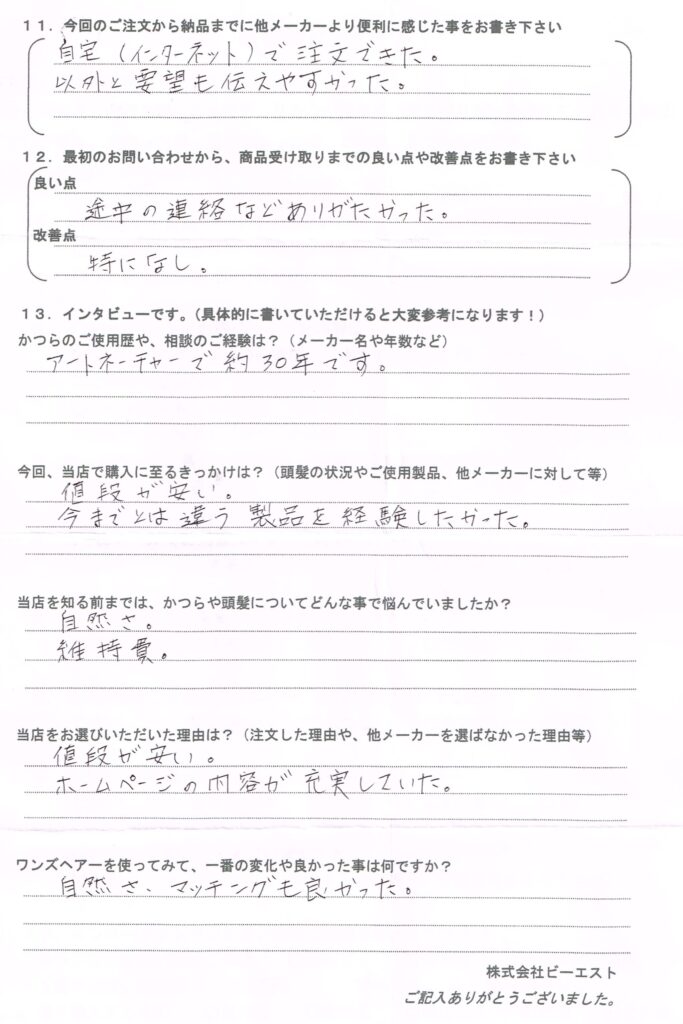 11．今回のご注文から納品までに他メーカーより便利に感じた事をお書き下さい
自宅（インターネット）で注文できた。
以外と要望も伝えやすかった。
12．最初のお問い合わせから、商品受け取りまでの良い点や改善点をお書き下さい
良い点
途中の連絡などありがたかった。
改善点
特になし。
13．インタビューです。（具体的に書いていただけると大変参考になります！）
かつらのご使用歴や、相談のご経験は？（メーカー名や年数など）
アートネーチャーで約30年です。
今回、当店で購入に至るきっかけは？（頭髪の状況やご使用製品、他メーカーに対して等）
値段が安い。
今までとは違う製品を経験したかった。
当店を知る前までは、かつらや頭髪についてどんな事で悩んでいましたか？
自然さ。
維持費。
当店をお選びいただいた理由は？（注文した理由や、他メーカーを選ばなかった理由等）
値段が安い。
ホームページの内容が充実していた。
ワンズヘアーを使ってみて、一番の変化や良かった事は何ですか？
自然さ、マッチングも良かった。
株式会社ビーエスト
ご記入ありがとうございました。